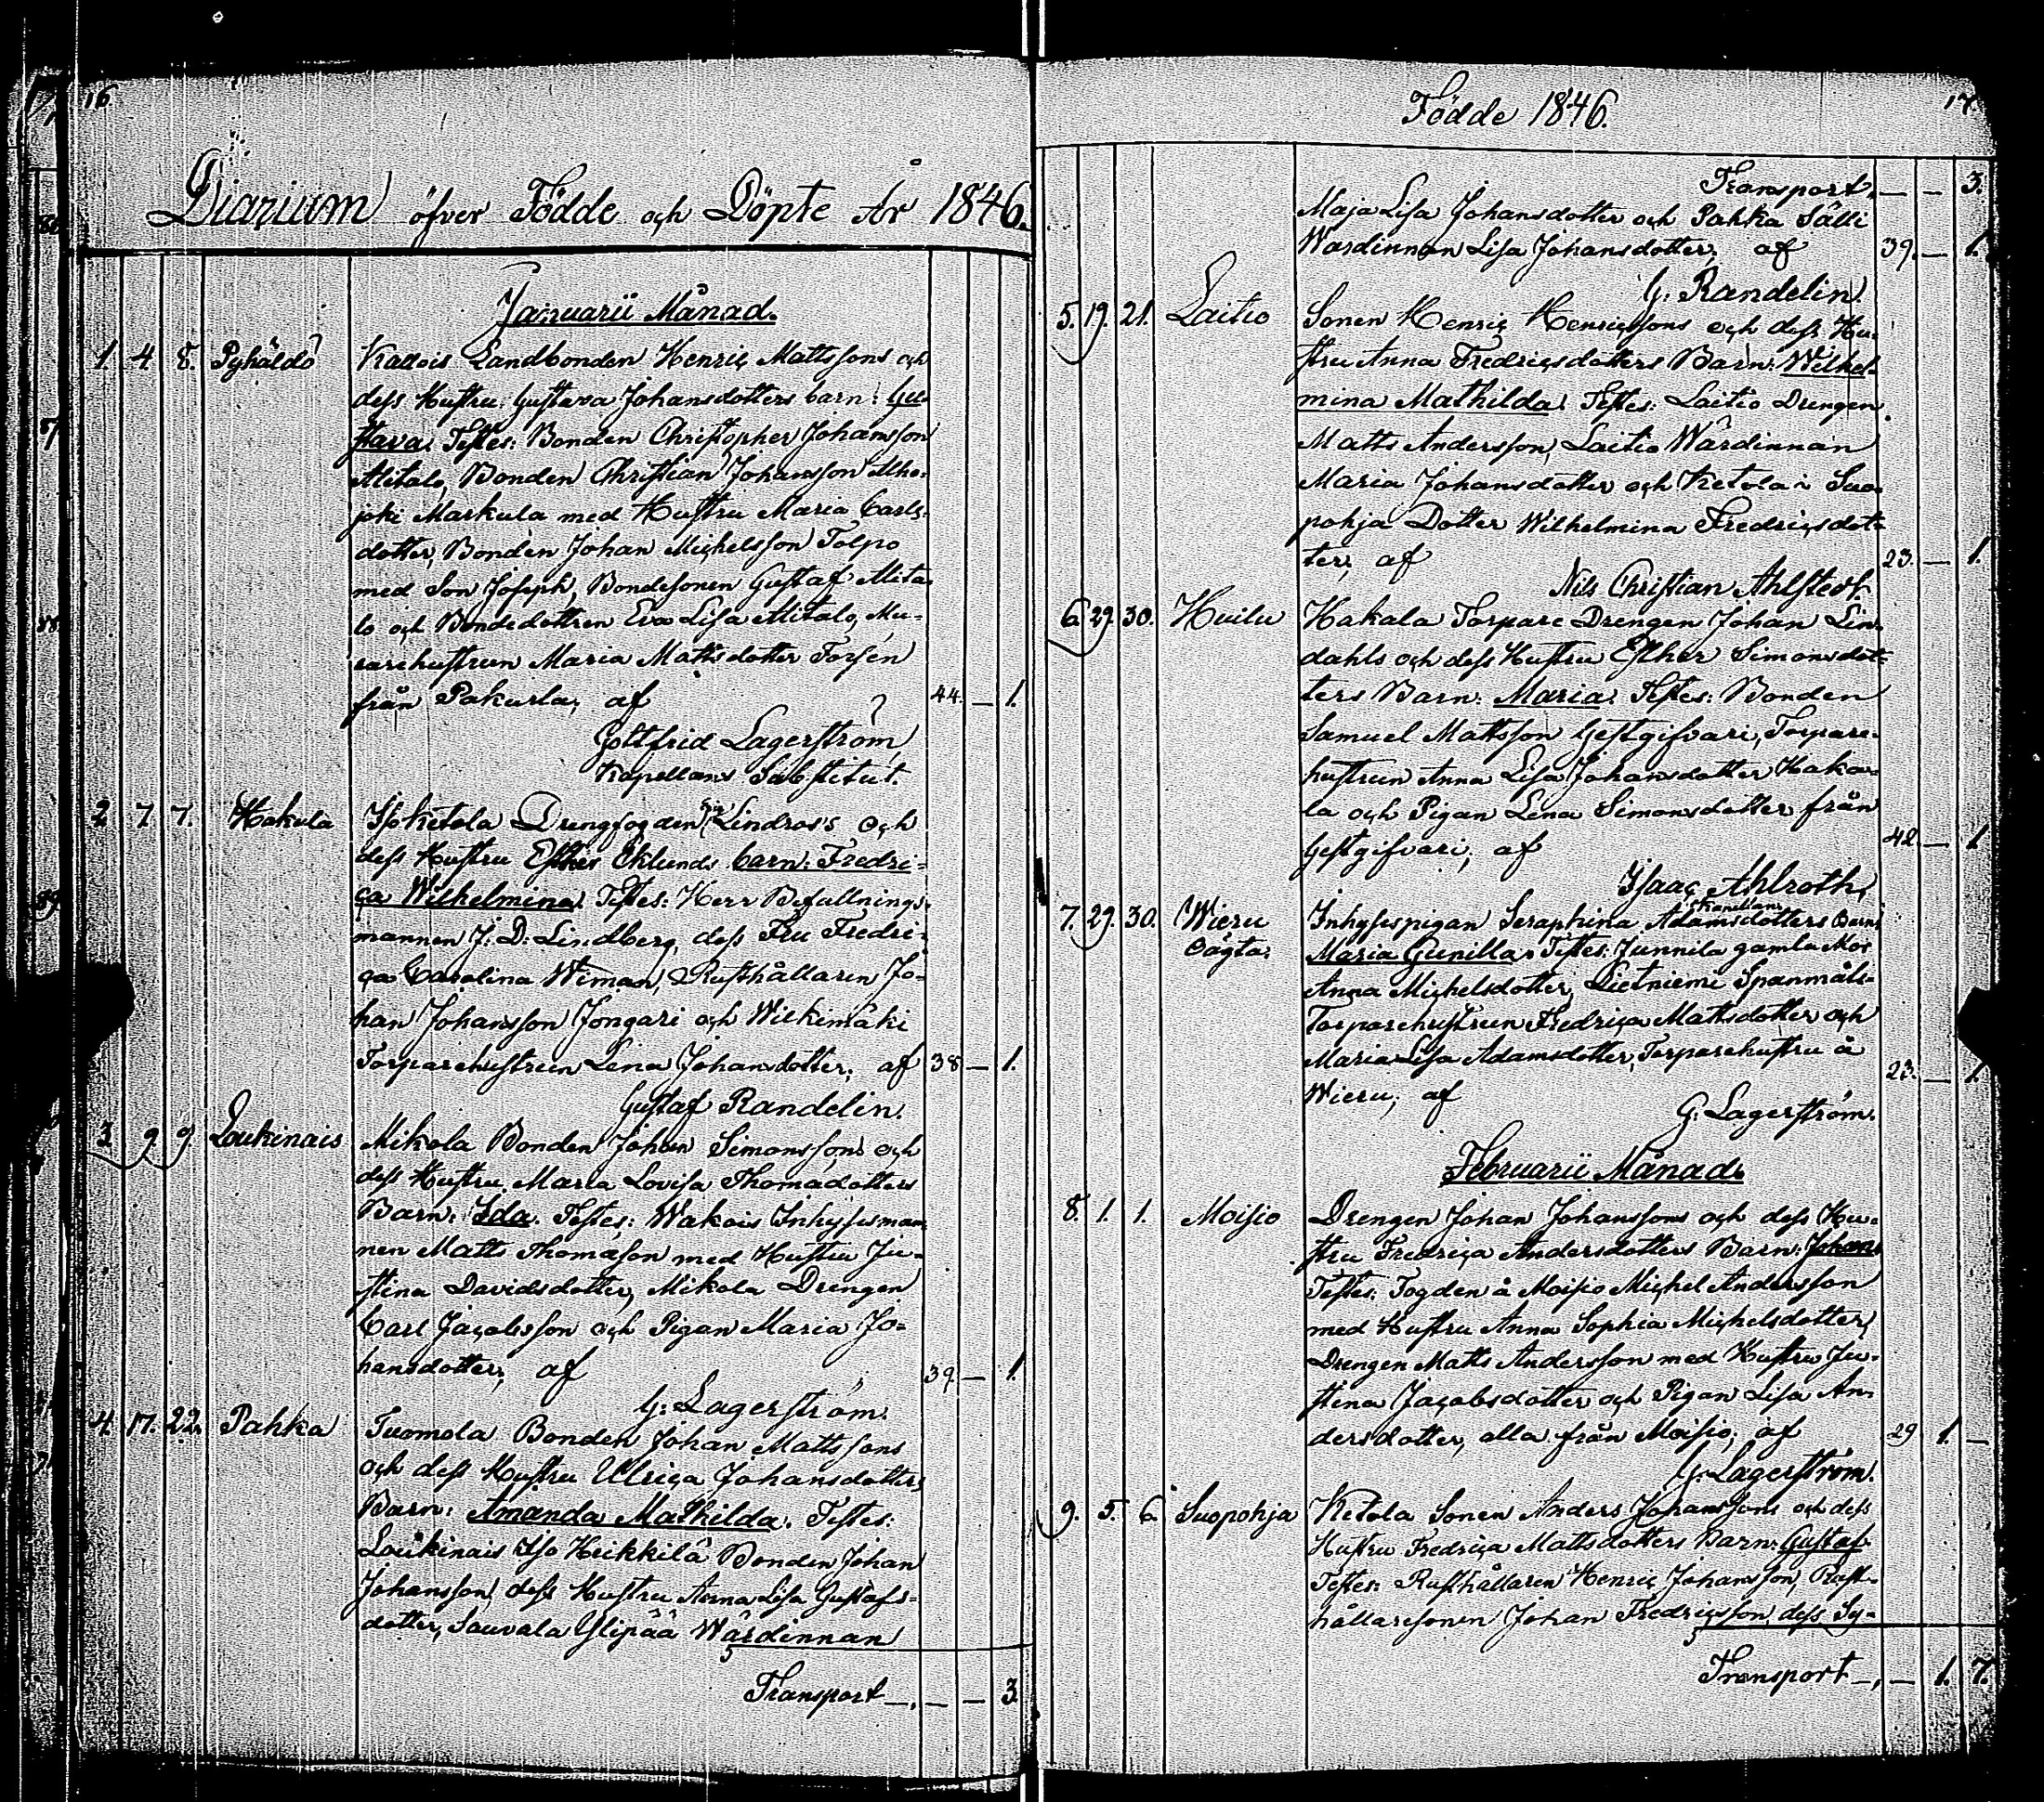 16
Diarium öfver Födde och Döpte År 1846.
Januarii Månad.
1. 4. 8. Pyhäldö Kaapois Landbonden Henric Mattssons och
dess Hustru Gustava Johansdotters barn: Gu-
stava. Testes: Bonden Christopher Johansson
Alitalo, Bonden Christian Johansson Alho-
joki Markula med Hustru Maria Carls-
dotter, Bonden Johan Michelsson Tolpo
med Son Joseph, Bondesonen Gustaf Alita-
lo och Bondedottren Eva Lisa Alitalo, Mu-
rarehustrun Maria Mattsdotter Forsén
från Pakurla, af 44. — 1.
Gottfrid Lagerström
Kapellans Substitut.
2. 7. 7. Hakula Isoketola Drengfogden Lindros's och
dess Hustru Esther Eklunds barn: Fredri-
ca Wilhelmina. Testes: Herr Befallnings-
mannen J: D: Lindberg, dess Fru Fredri-
ca Carolina Wiman, Rusthållaren Jo-
han Johansson Jongari och Wilkimäki
Torparehustrun Lena Johansdotter, af 38 — 1.
Gustaf Randelin.
3. 9. 9. Loukinais Mikola Bonden Johan Simonssons och
dess Hustru Maria Lovisa Thomædotters
Barn: Ida. Testes: Wakois Inhysesman-
nen Matts Thomæson med Hustru Ju-
stina Davidsdotter, Mikola Drengen
Carl Jacobsson och Pigan Maria Jo-
hansdotter; af 39. — 1.
G: Lagerström.
4. 17. 22. Pahka Tuomola Bonden Johan Mattssons
och dess Hustru Ulrica Johansdotters
Barn: Amanda Mathilda. Testes:
Loukinais Iso Heikkilä Bonden Johan
Johansson, dess Hustru Anna Lisa Gustafs-
dotter, Sauvala Ylipää Wärdinnan
Transport —, — — 3.
Födde 1846.
17.
Transport, — — 3.
Maja Lisa Johansdotter och Pahka Sälli
Wärdinnan Lisa Johansdotter, af 39. — 1.
G: Randelin.
5. 19. 21. Laitio Sonen Henric Henricssons och dess Hu-
stru Anna Fredricsdotters Barn: Wilhel-
mina Mathilda. Testes: Laitio Drengen
Matts Andersson, Laitio Wärdinnan
Maria Johansdotter och Ketola i Suo-
pohja Dotter Wilhelmina Fredricsdot-
ter, af 23. — 1.
Nils Christian Ahlstedt.
6. 29. 30. Huilu Hakala Torpare Drengen Johan Lin-
dahls och dess Hustru Esther Simonsdot-
ters Barn: Maria. Testes: Bonden
Samuel Mattsson Gestgifvari, Torpare-
hustrun Anna Lisa Johansdotter Haka-
la och Pigan Lena Simonsdotter från
Gestgifvari; af 42. — 1
Isaac Ahlroth,
Kapellan.
7. 29. 30. Wieru Inhysespigan Seraphina Adamsdotters Barn:
Maria Gunilla. Testes: Junnila gamla Mor
Anna Michelsdotter, Lietniemi Spanmåls-
Torparehustrun Fredrica Mattsdotter och
Maria Lisa Adamsdotter, Torparehustru å
Wieru; af 23. — 1.
G: Lagerström.
Februarii Månad.
8. 1. 1. Moisio Drengen Johan Johanssons och dess Hu-
stru Fredrica Andersdotters Barn: Johan.
Testes: Fogden å Moisio Michel Andersson
med Hustru Anna Sophia Michelsdotter,
Drengen Matts Andersson med Hustru Ju-
stina Jacobsdotter och Pigan Lisa An-
dersdotter, alla från Moisio; af 29 1. —
G: Lagerström.
9. 5. 6. Suopohja Ketola Sonen Anders Johanssons och dess
Hustru Fredrica Mattsdotters Barn: Gustaf.
Testes: Rusthållaren Henric Johansson, Rust-
hållaresonen Johan Fredricsson, dess Sy-
Transport —, — 1. 7.